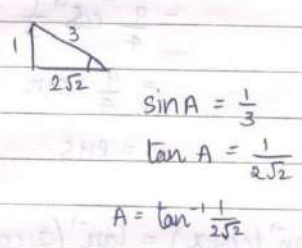 3
1
2√2
sin A = 1/3
tan A = 1/2√2
A = tan⁻¹ 1/2√2